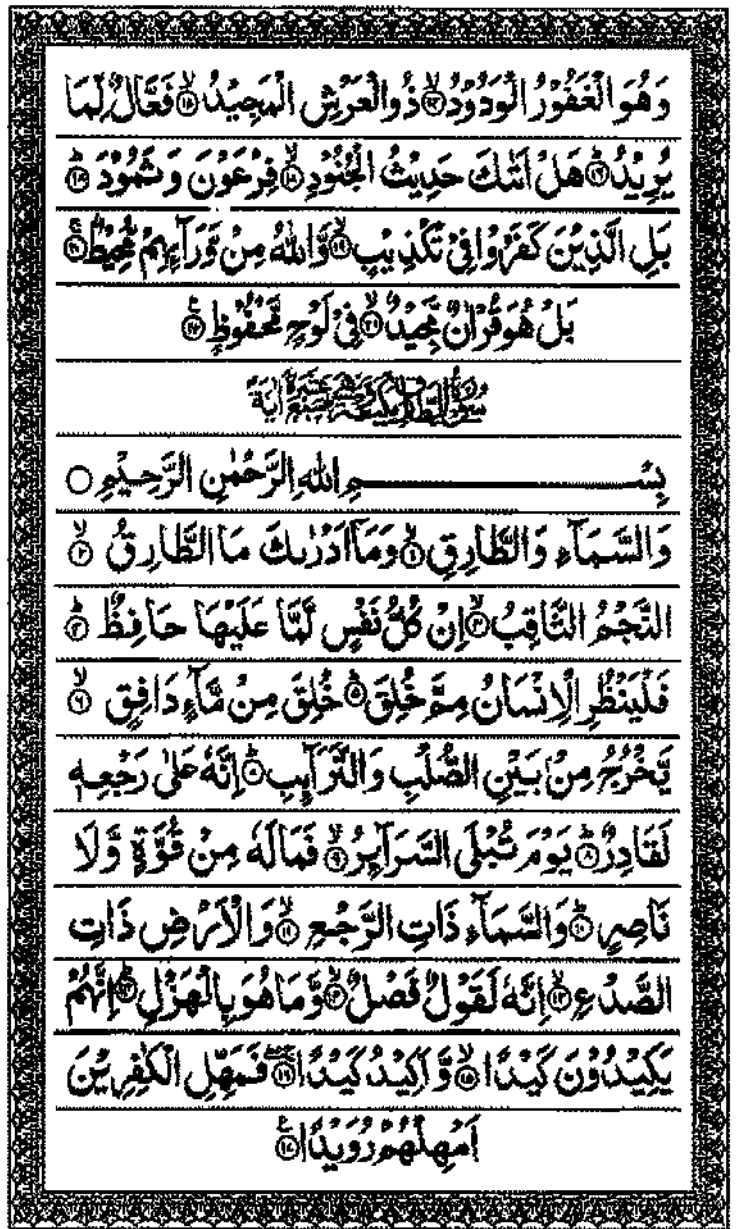 وَهُوَ الْغَفُوْرُ الْوَدُوْدُ ۙ﴿۱۴﴾ ذُو الْعَرْشِ الْمَجِيْدُ ۙ﴿۱۵﴾ فَعَّالٌ لِّمَا
يُرِيْدُ ؕ﴿۱۶﴾ هَلْ اَتٰىكَ حَدِيْثُ الْجُنُوْدِ ۙ﴿۱۷﴾ فِرْعَوْنَ وَ ثَمُوْدَ ؕ﴿۱۸﴾
بَلِ الَّذِيْنَ كَفَرُوْا فِيْ تَكْذِيْبٍ ۙ﴿۱۹﴾ وَّاللّٰهُ مِنْ وَّرَآئِهِمْ مُّحِيْطٌ ۚ﴿۲۰﴾
بَلْ هُوَ قُرْاٰنٌ مَّجِيْدٌ ۙ﴿۲۱﴾ فِيْ لَوْحٍ مَّحْفُوْظٍ ﴿۲۲﴾
بِسْمِ اللّٰهِ الرَّحْمٰنِ الرَّحِيْمِ ○
وَالسَّمَآءِ وَالطَّارِقِ ۙ﴿۱﴾ وَمَاۤ اَدْرٰىكَ مَا الطَّارِقُ ۙ﴿۲﴾
النَّجْمُ الثَّاقِبُ ۙ﴿۳﴾ اِنْ كُلُّ نَفْسٍ لَّمَّا عَلَيْهَا حَافِظٌ ؕ﴿۴﴾
فَلْيَنْظُرِ الْاِنْسَانُ مِمَّ خُلِقَ ؕ﴿۵﴾ خُلِقَ مِنْ مَّآءٍ دَافِقٍ ۙ﴿۶﴾
يَّخْرُجُ مِنْۢ بَيْنِ الصُّلْبِ وَالتَّرَآئِبِ ؕ﴿۷﴾ اِنَّهٗ عَلٰى رَجْعِهٖ
لَقَادِرٌ ؕ﴿۸﴾ يَوْمَ تُبْلَى السَّرَآئِرُ ۙ﴿۹﴾ فَمَا لَهٗ مِنْ قُوَّةٍ وَّلَا
نَاصِرٍ ؕ﴿۱۰﴾ وَالسَّمَآءِ ذَاتِ الرَّجْعِ ۙ﴿۱۱﴾ وَالْاَرْضِ ذَاتِ
الصَّدْعِ ۙ﴿۱۲﴾ اِنَّهٗ لَقَوْلٌ فَصْلٌ ۙ﴿۱۳﴾ وَّمَا هُوَ بِالْهَزْلِ ؕ﴿۱۴﴾ اِنَّهُمْ
يَكِيْدُوْنَ كَيْدًا ۙ﴿۱۵﴾ وَّاَكِيْدُ كَيْدًا ۚ﴿۱۶﴾ فَمَهِّلِ الْكٰفِرِيْنَ
اَمْهِلْهُمْ رُوَيْدًا ﴿۱۷﴾